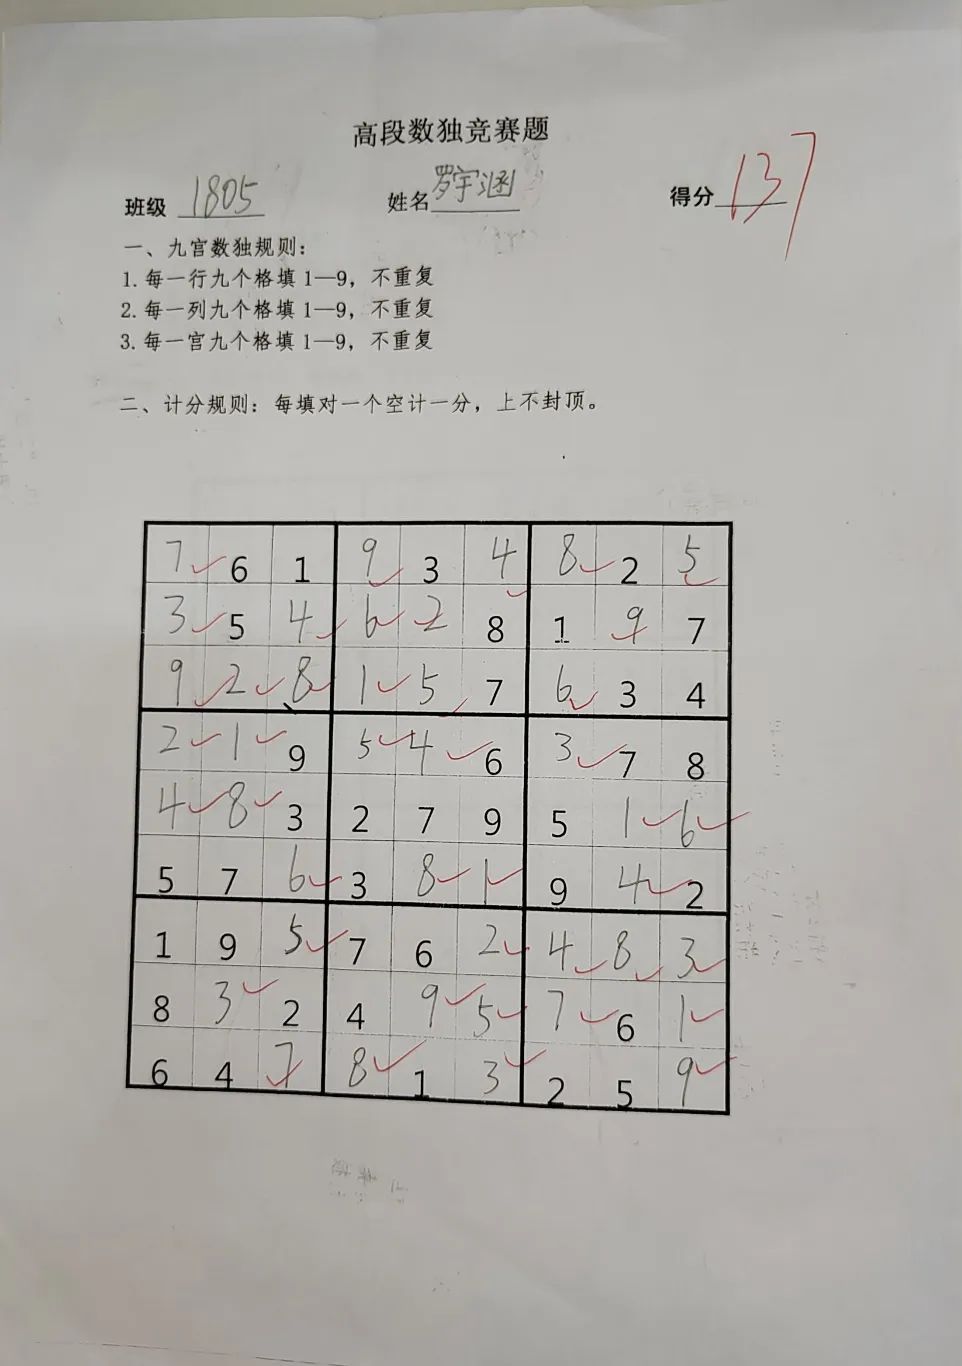 高段数独竞赛题
班级 1805 姓名 罗宇涵 得分 137
一、九宫数独规则:
1.每一行九个格填1—9,不重复
2.每一列九个格填1—9,不重复
3.每一宫九个格填1—9,不重复
二、计分规则:每填对一个空计一分,上不封顶。
7 6 1 9 3 4 8 2 5
3 5 4 6 2 8 1 9 7
9 2 8 1 5 7 6 3 4
2 1 9 5 4 6 3 7 8
4 8 3 2 7 9 5 1 6
5 7 6 3 8 1 9 4 2
1 9 5 7 6 2 4 8 3
8 3 2 4 9 5 7 6 1
6 4 7 8 1 3 2 5 9